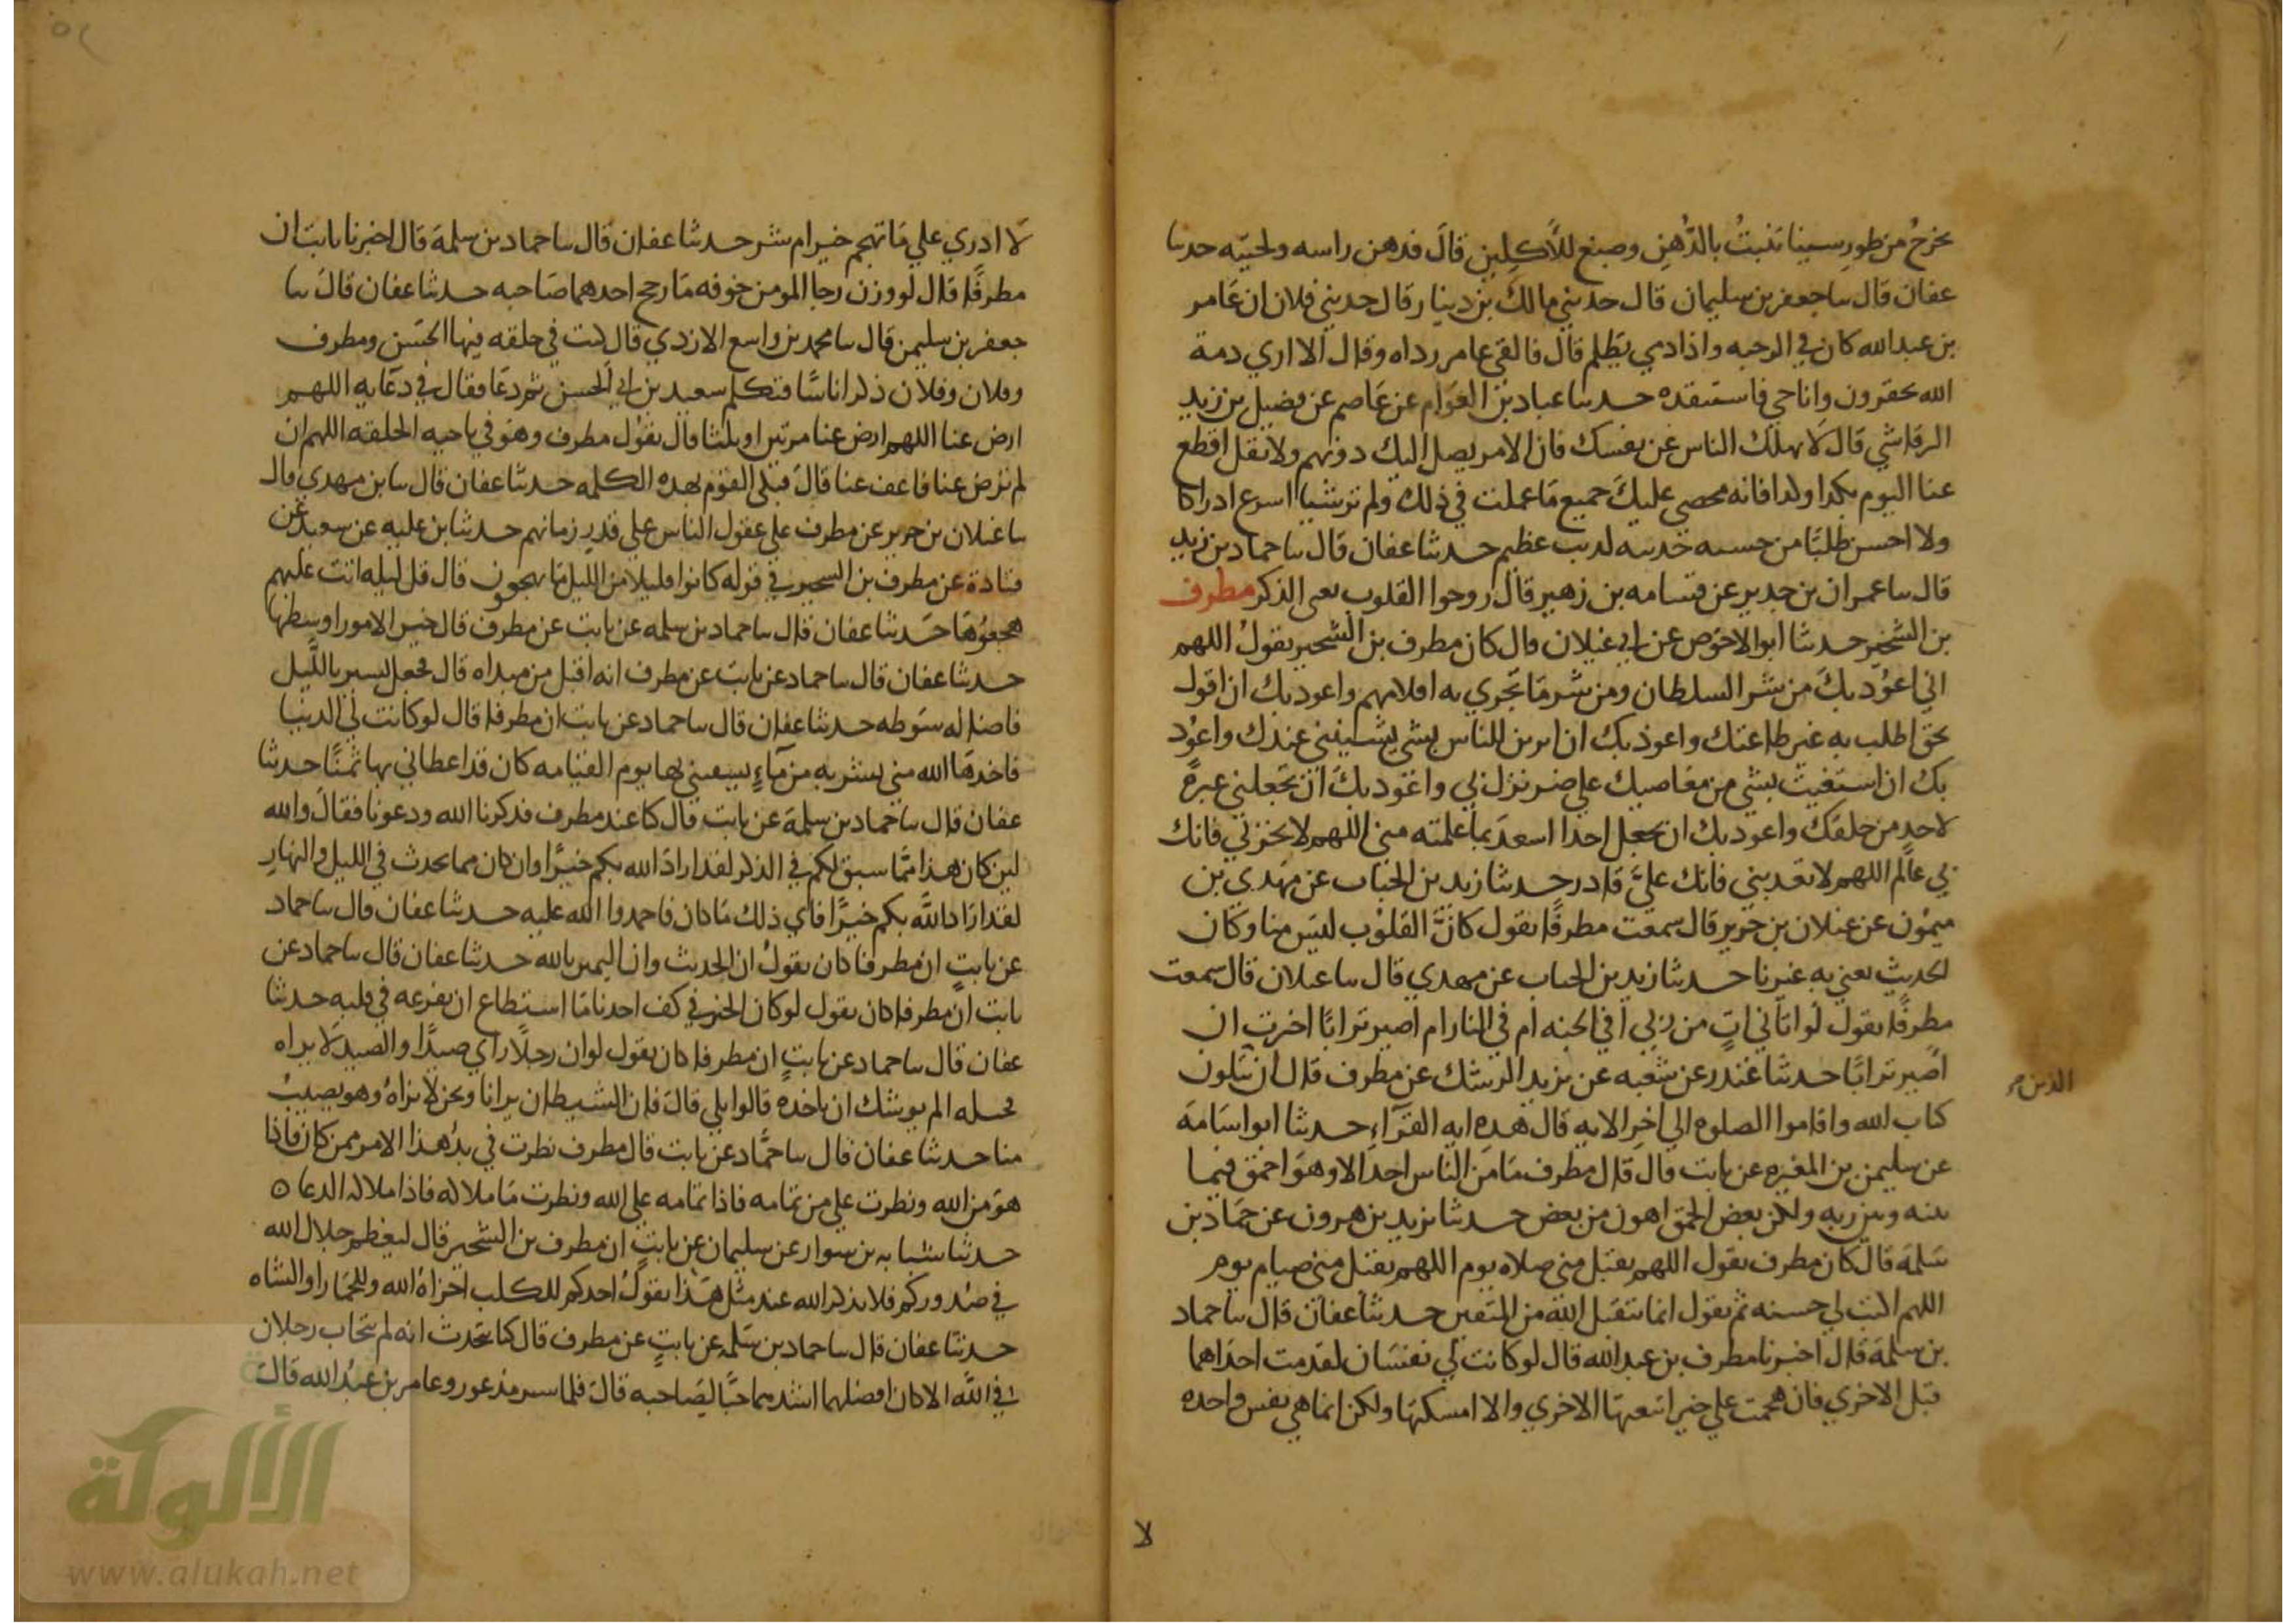 يخرج من طور سينا تنبت بالدهن وصبغ للآكلين قال فدهن راسه ولحيته حدثنا
عفان قال سا جعفر بن سليمان قال حدثني مالك بن دينار قال حدثني فلان ان عامر
بن عبد الله كان في الرحبه واذا ذمي يظلم قال فالقى عامر رداه وقال الا اري ذمة
الله تحقرون وانا حي فاستنقذه حدثنا عباد بن العوام عن عاصم عن فضيل بن زيد
الرقاشي قال لا يهلك الناس عن نفسك فان الامر يصل اليك دونهم ولا تقل اقطع
عنا اليوم بكذا وكذا فانه محصي عليك جميع ما عملت في ذلك ولم تر شيا اسرع ادراكا
ولا احسن طلبا من حسنه حديثه لذنب عظيم حدثنا عفان قال سا حماد بن زيد
قال سا عمران بن حدير عن قسامه بن زهير قال روحوا القلوب تعي الذكر مطرف
بن الشخير حدثنا ابو الاحوص عن ابي غيلان قال كان مطرف بن الشخير يقول اللهم
اني اعوذ بك من شر السلطان ومن شر ما تجري به اقلامهم واعوذ بك ان اقول
بحق اطلب به غير طاعتك واعوذ بك ان اتزين للناس بشي يشينني عندك واعوذ
بك ان استغيث بشي من معاصيك على ضر نزل بي واعوذ بك ان تجعلني عبرة
لاحد من خلقك واعوذ بك ان تجعل احدا اسعد بما علمته مني اللهم لا تخزني فانك
بي عالم اللهم لا تعذبني فانك علي قادر حدثنا زيد بن الحباب عن مهدي بن
ميمون عن غيلان بن جرير قال سمعت مطرفا يقول كان القلوب ليس منا وكان
الحديث يعني به غيرنا حدثنا زيد بن الحباب عن مهدي قال سا غيلان قال سمعت
مطرفا يقول لو اتاني ات من ربي افي الجنه ام في النار ام اصير ترابا اخترت ان
اصير ترابا حدثنا غندر عن شعبه عن يزيد الرشك عن مطرف قال ان يتلون
الذين
كتاب الله واقاموا الصلوه الي اخر الايه قال هذه ايه القراء حدثنا ابو اسامه
عن سليمن بن المغيره عن ثابت قال قال مطرف ما من الناس احد الا وهو احمق فيما
بينه وبين ربه ولكن بعض الحمق اهون من بعض حدثنا يزيد بن هرون عن حماد بن
سلمه قال كان مطرف يقول اللهم تقبل مني صلاه يوم اللهم تقبل مني صيام يوم
اللهم اكتب لي حسنه ثم يقول انما يتقبل الله من المتقين حدثنا عفان قال سا حماد
بن سلمه قال اخبرنا مطرف بن عبد الله قال لو كانت لي نفسان لقدمت احداهما
قبل الاخري فان هجمت علي خير اتبعتها الاخري والا امسكتها ولكن انما هي نفس واحده
لا
لا ادري علي ما تهجم خير ام شر حدثنا عفان قال سا حماد بن سلمة قال اخبرنا ثابت ان
مطرفا قال لو وزن رجا المومن خوفه ما رجح احدهما صاحبه حدثنا عفان قال سا
جعفر بن سليمن قال سا محمد بن واسع الازدي قال كنت في حلقه فيها الحسن ومطرف
وفلان وفلان ذكر اناسا فتكلم سعيد بن ابي الحسن ثم دعا فقال في دعايه اللهم
ارض عنا اللهم ارض عنا مرتين او ثلثا قال يقول مطرف وهو في ناحيه الحلقه اللهم ان
لم ترض عنا فاعف عنا قال فبكى القوم بهذه الكلمه حدثنا عفان قال سا بن مهدي قال
سا غيلان بن جرير عن مطرف علي عقول الناس علي قدر زمانهم حدثنا بن عليه عن سعيد عن
قتادة عن مطرف بن الشخير في قوله كانوا قليلا من الليل ما يهجعون قال قل ليله اتت عليهم
هجعوها حدثنا عفان قال سا حماد بن سلمه عن ثابت عن مطرف قال خير الامور اوسطها
حدثنا عفان قال سا حماد عن ثابت عن مطرف انه اقبل من مبداه قال فجعل يسير بالليل
فاضا له سوطه حدثنا عفان قال سا حماد عن ثابت ان مطرفا قال لو كانت لي الدنيا
فاخذها الله مني بشربه من ماء يسقيني بها يوم القيامه كان قد اعطاني بها ثمنا حدثنا
عفان قال سا حماد بن سلمة عن ثابت قال كنا عند مطرف فذكرنا الله ودعونا فقال والله
لين كان هذا مما سبق لكم في الذكر لقد اراد الله بكم خيرا وان كان مما يحدث في الليل والنهار
لقد اراد الله بكم خيرا فاي ذلك ما كان فاحمدوا الله عليه حدثنا عفان قال سا حماد
عن ثابت ان مطرفا كان يقول ان الحديث وان اليمين بالله حدثنا عفان قال سا حماد عن
ثابت ان مطرفا كان يقول لو كان الخير في كف احدنا ما استطاع ان يفرغه في قلبه حدثنا
عفان قال سا حماد عن ثابت ان مطرفا كان يقول لو ان رجلا راي صيدا والصيد لا يراه
يختله الم يوشك ان ياخذه قالوا بلي قال فان الشيطان يرانا ونحن لا نراه وهو يصيب
منا حدثنا عفان قال سا حماد عن ثابت قال مطرف نظرت في بدء هذا الامر ممن كان فاذا
هو من الله ونظرت علي من تمامه فاذا تمامه علي الله ونظرت ما ملاكه فاذا ملاكه الدعاه
حدثنا شبابه بن سوار عن سليمان عن ثابت ان مطرف بن الشخير قال ليعظم جلال الله
في صدوركم فلا يذكر الله عند مثل هذا يقول احدكم للكلب اخزاه الله وللحمار او الشاه
حدثنا عفان قال سا حماد بن سلمه عن ثابت عن مطرف قال كنا نتحدث انه لم يتحاب رجلان
في الله الا كان افضلهما اشدهما حبا لصاحبه قال فلما سير مذعور وعامر بن عبد الله قال
الألوكة
www.alukah.net